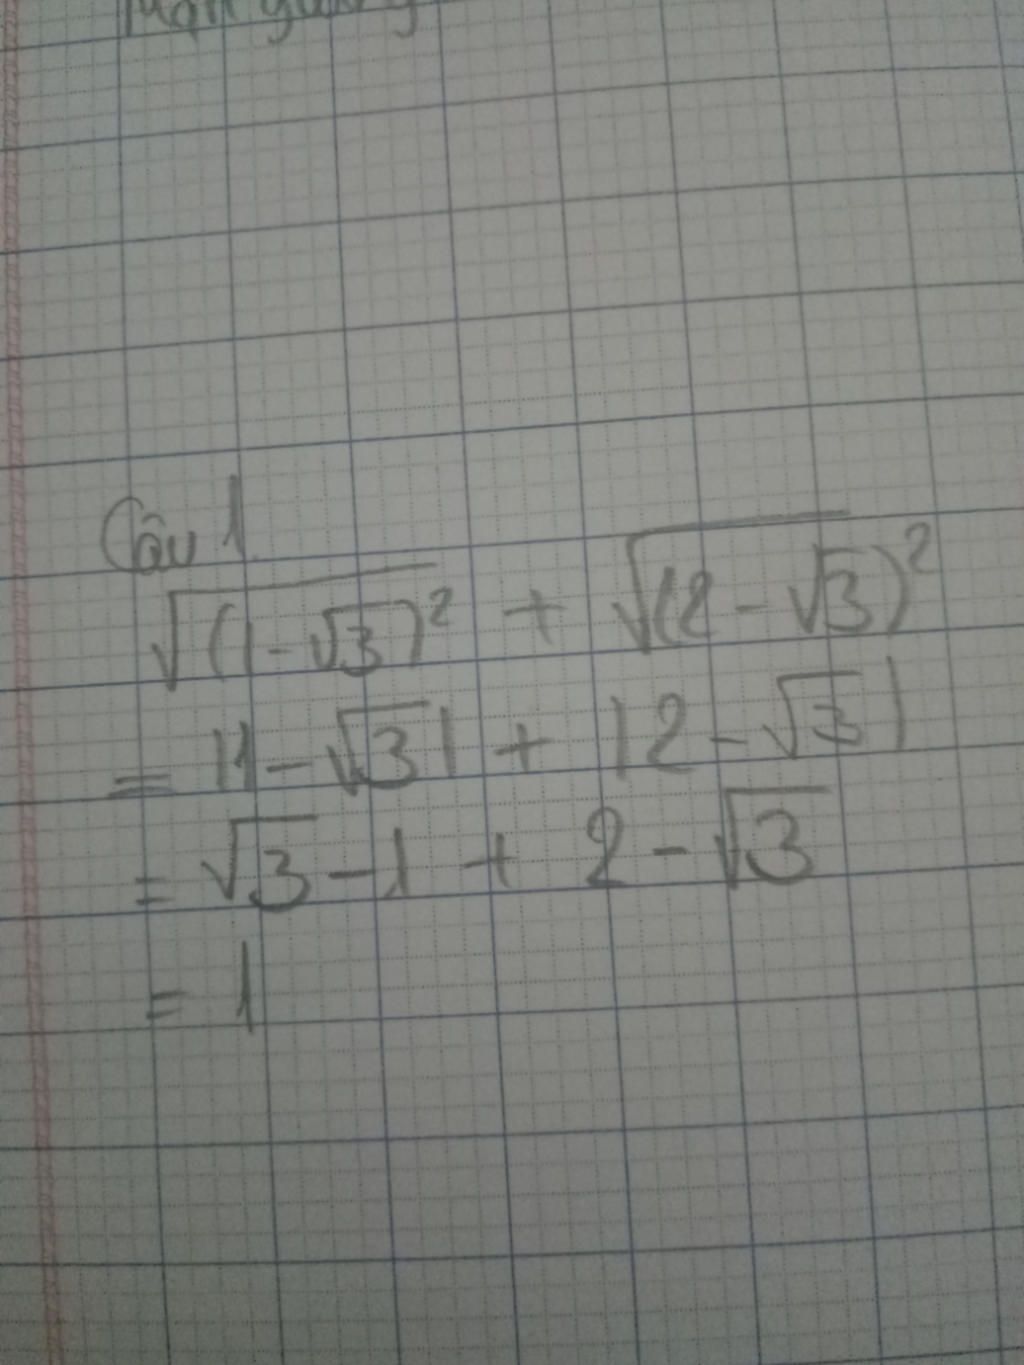 Câu 1
√(1-√3)² + √(2-√3)²
= |1-√3| + |2-√3|
= √3 - 1 + 2 - √3
= 1